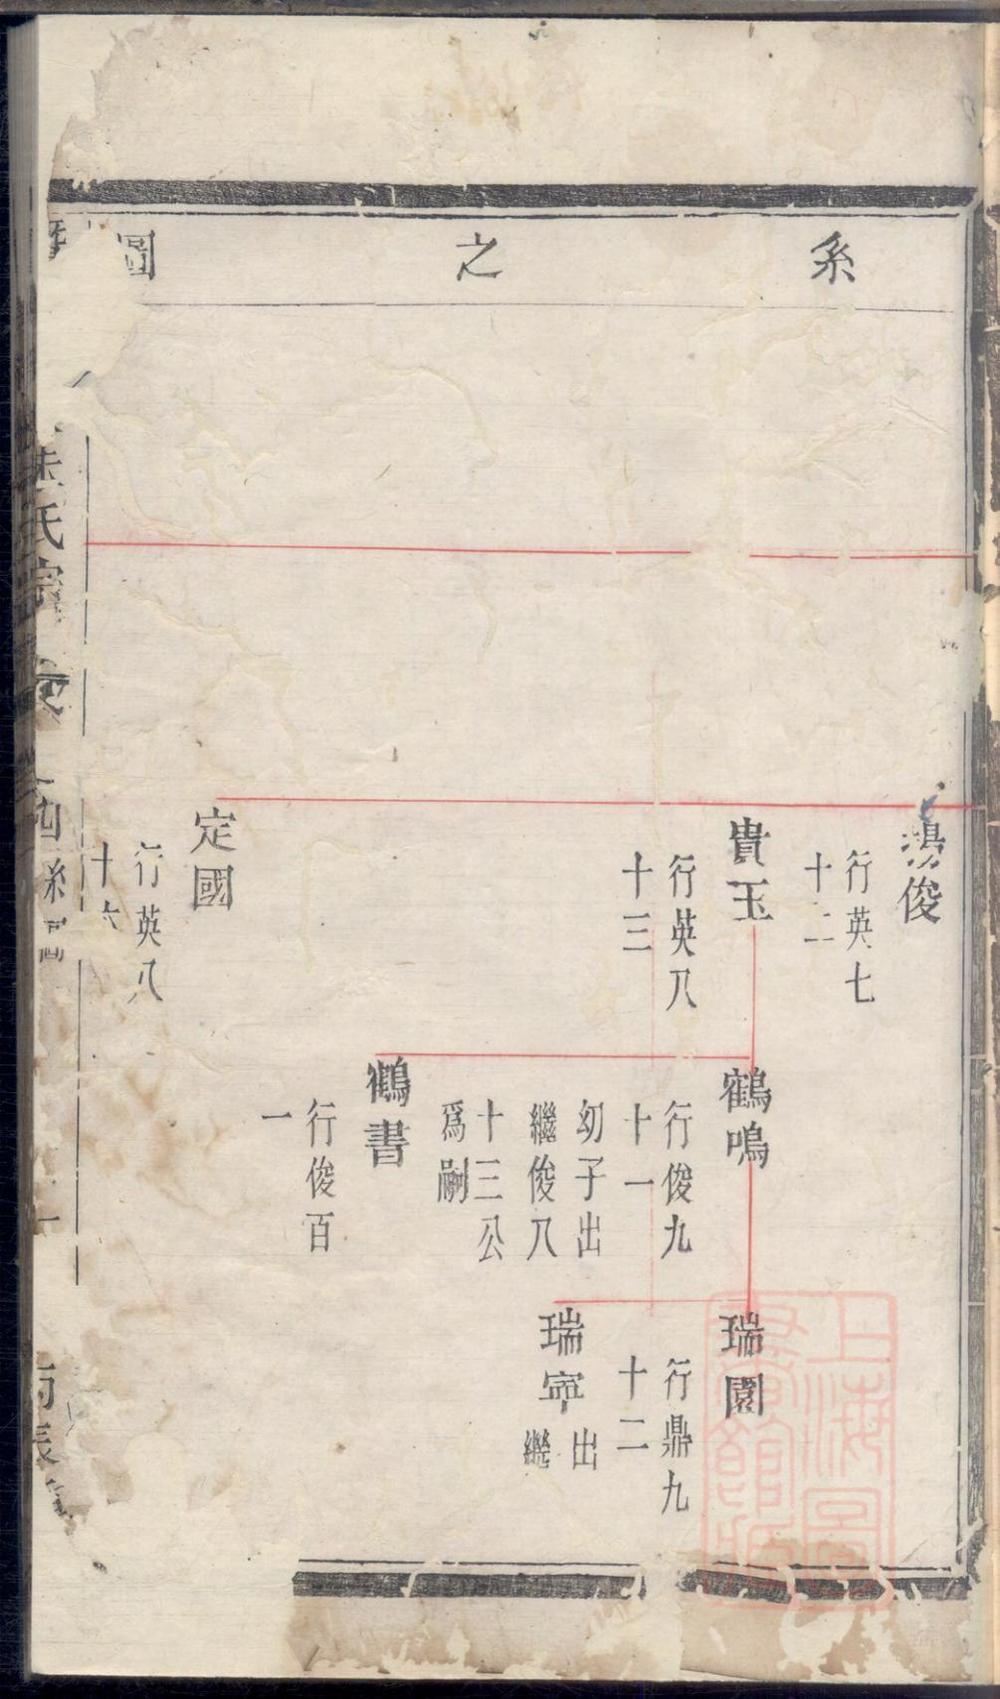 系之圖
俊
行英七
十二
貴玉
行英八
十三
鶴鳴
行俊九
十一
幼子出
繼俊八
十三公
爲嗣
瑞園
行鼎九
十二
瑞寧
出
繼
鶴書
行俊百
一
定國
行英八
十六
氏宗
系圖
上海圖
書館藏